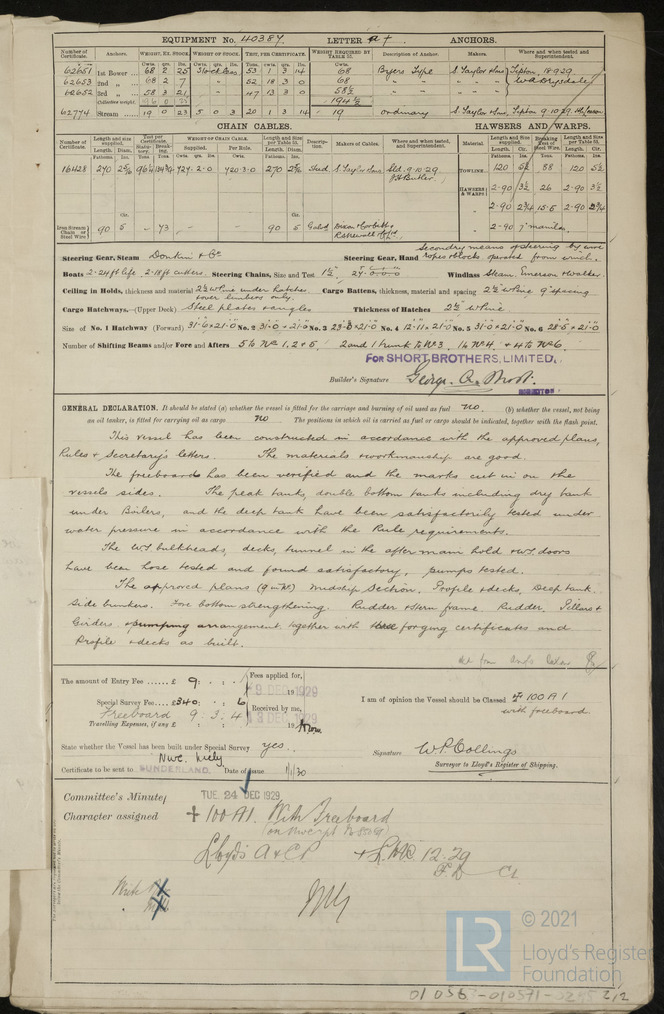 EQUIPMENT No. 40387. LETTER a†. ANCHORS.
Number of Certificate. Anchors. WEIGHT, EX. STOCK. WEIGHT OF STOCK. TEST, PER CERTIFICATE. WEIGHT REQUIRED BY TABLE 53. Description of Anchor. Makers. Where and when tested and Superintendent.
62651 1st Bower 68 2 25 Stockless 53 1 3 14 68 Byers Type S. Taylor & Sons Tipton 18.9.29
62653 2nd " 68 2 7 52 18 3 0 68 " " " " W.A. Drysdale
62652 3rd " 58 3 21 47 13 3 0 58½ " "
Collective weight. 194½
62774 Stream 19 0 23 5 0 3 20 1 3 14 19 ordinary S. Taylor & Sons Tipton 9.10.29
CHAIN CABLES. HAWSERS AND WARPS.
Number of Certificate. Length and size supplied. Test per Certificate. WEIGHT OF CHAIN CABLE. Length and size per Table 53. Description. Makers of Cables. Where and when tested, and Superintendent. Material. Length and Size supplied. Breaking Test of Steel Wire. Length and Size per Table 53.
Supplied. Per Rule.
16428 270 727.2.0 720.3.0 270 Stud S. Taylor & Sons 9.10.29 TOWLINE 120 5½ 88 120 5½
HAWSERS & WARPS 2-90 3½ 26 2-90 3½
2-90 2¾ 15.5 2-90 2¾
Iron Stream Chain or Steel Wire 90 5 43 90 5 Galvd. Dixon Corbitt & 2-90 7" manila.
Secondary means of steering by wire
Steering Gear, Steam Donkin & Co. Steering Gear, Hand ropes & blocks operated from winch.
Boats 2-24ft life. 2-18ft cutters. Steering Chains, Size and Test Windlass Steam. Emerson & Walker.
Ceiling in Holds, thickness and material 2½ W Pine under hatches Cargo Battens, thickness, material and spacing 2½ W Pine 9" spacing
over limbers only.
Cargo Hatchways.—(Upper Deck) Steel plates & angles Thickness of Hatches 2½ W Pine.
Size of No. 1 Hatchway (Forward) 31-6 × 21-0 No. 2 31-0 × 21-0 No. 3 No. 4 12-11 × 21-0 No. 5 31-0 × 21-0 No. 6 28-5 × 21-0
Number of Shifting Beams and/or Fore and Afters 5 to Nos. 1, 2 & 5. 2 and 1 trunk to No. 3. 1 to No. 4. & 4 to No. 6.
FOR SHORT BROTHERS, LIMITED,
Builder's Signature
GENERAL DECLARATION. It should be stated (a) whether the vessel is fitted for the carriage and burning of oil used as fuel no. (b) whether the vessel, not being
an oil tanker, is fitted for carrying oil as cargo no The positions in which oil is carried as fuel or cargo should be indicated, together with the flash point.
This vessel has been constructed in accordance with the approved plans,
Rules & Secretary's letters. The materials & workmanship are good.
The freeboards has been verified and the marks cut in on the
vessels sides. The peak tanks, double bottom tanks including dry tank
under Boilers, and the deep tank have been satisfactorily tested under
water pressure in accordance with the Rule requirements.
The W.T. bulkheads, decks, tunnel in the after main hold & W.T. doors
have been hose tested and found satisfactory, pumps tested.
The approved plans (9 in No.) Midship Section. Profile & decks, Deep tank.
Side bunkers. Fore bottom strengthening. Rudder & Stern frame. Rudder, Pillars &
Girders & pumping arrangement, together with forging certificates and
Profile & decks as built.
The amount of Entry Fee £ 9 : : Fees applied for,
9 DEC 1929
Special Survey Fee £340 : : 6 Received by me,
Freeboard 9 : 3 : 4 13 DEC 1929
Travelling Expenses, if any £
I am of opinion the Vessel should be Classed ✠ 100 A 1
with freeboard
State whether the Vessel has been built under Special Survey yes.
Signature W.P. Collings
Surveyor to Lloyd's Register of Shipping.
Certificate to be sent to SUNDERLAND. Date of issue 1/1/30
Committee's Minute TUE. 24 DEC 1929
Character assigned + 100 A1. With Freeboard
Lloyd's A & CP + LMC 12.29
F.D. CL
© 2021
LR
Lloyd's Register
Foundation